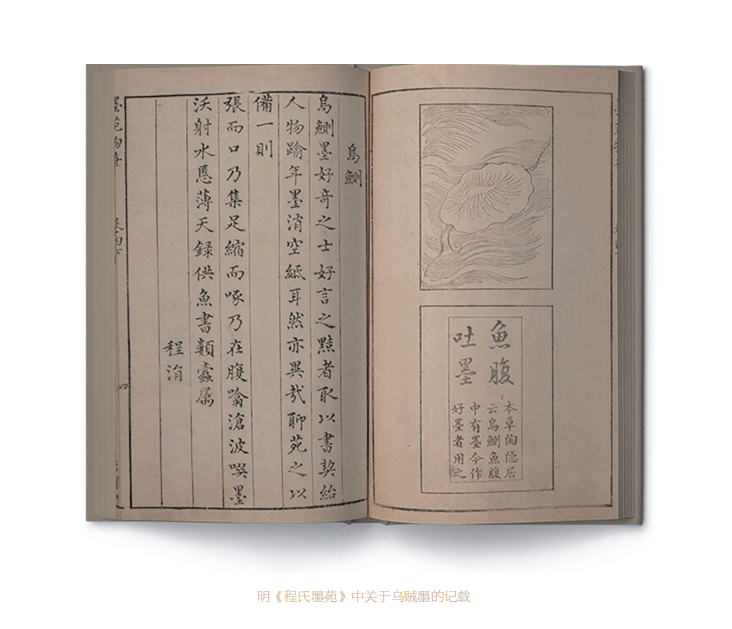 魚腹
吐墨
本草陶隐居
云烏鰂魚腹
中有墨今作
好墨者用之
烏鰂
烏鰂墨好奇之士好言之黠者取以書契紿
人物踰年墨消空紙耳然亦異哉聊苑之以
備一則
張而口乃集足縮而啄乃在腹噏滄波噀墨
沃射水慝薄天録供魚書顛蠹属
程涓
明《程氏墨苑》中关于乌贼墨的记载